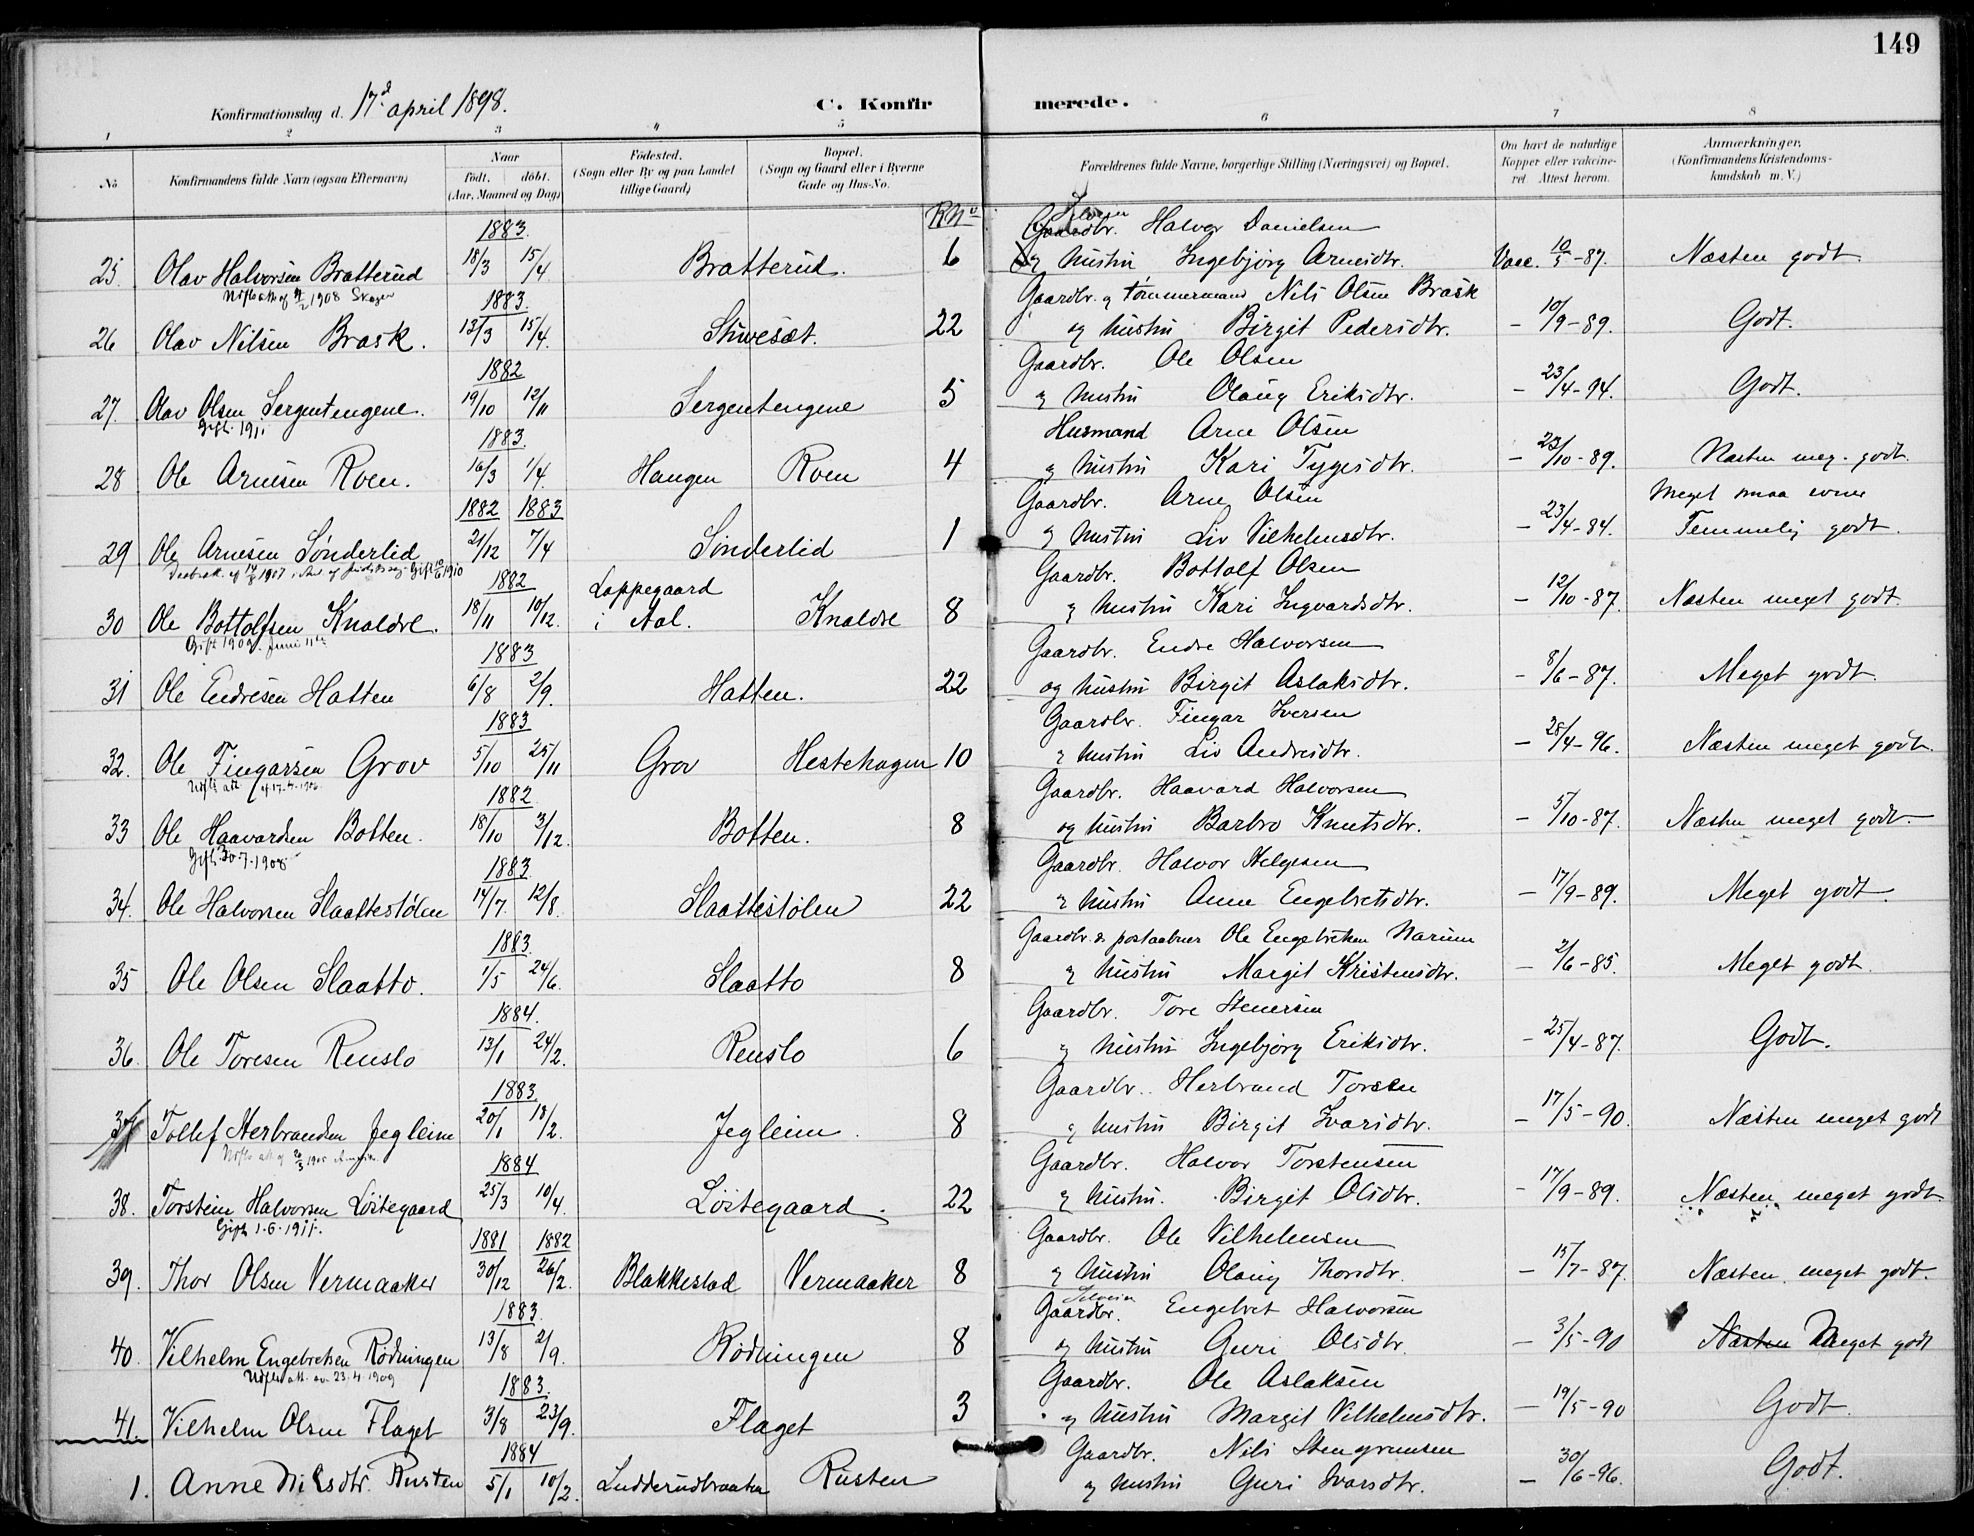 149
Konfirmationsdag d. 17d april 1898.
C. Konfirmerede.
1 2 3 4 5 6 7 8
No
Konfirmandens fulde Navn (ogsaa Efternavn)
Naar
født. døbt.
(Aar, Maaned og Dag)
Fødested.
(Sogn eller By og paa Landet
tillige Gaard)
Bopæl.
(Sogn og Gaard eller i Byerne
Gade og Hus-No.
Forældrenes fulde Navne, borgerlige Stilling (Næringsvei) og Bopæl.
Om havt de naturlige
Kopper eller vakcine-
ret Attest herom.
Anmærkninger.
(Konfirmandens Kristendoms-
kundskab m. V.)
RNo
1883. Gaardbr. Halvor Danielsen
25. Olav Halvorsen Bratterud 18/3 15/4. Bratterud. 6 og hustru Ingebjørg Arnesdtr. Vacc. 10/5-87. Næsten godt
1908
1883. Gaardbr. og tømmermand Nils Olsen Brask
26 Olav Nilsen Brask. 13/3 15/4. Stuvesæt. 22 og hustru Birgit Pedersdtr. - 10/9-89. Godt.
1882 Gaardbr. Ole Olsen
27. Olav Olsen Sergentengene. 19/10 12/11 Sergentengene 5 og hustru Olaug Eriksdtr. - 23/4-94. Godt.
Gift. 1911
1883. Husmand Arne Olsen
28 Ole Arnesen Roen. 16/3 1/4. Haugen Roen 4 og hustru Kari Tygesdtr. - 23/10-89. Næsten meg. godt.
1882 1883 Gaardbr. Arne Olsen Meget smaa evner
29 Ole Arnesen Sønderlid 21/12 7/4 Sønderlid 1 og hustru Liv Vilhelmsdtr. - 23/4-84. Temmelig godt.
1907 Gift 1910
1882 Loppegaard Gaardbr. Bottolf Olsen
30 Ole Bottolfsen Knaldre. 18/11 10/12. i Aal. Knaldre 8 og hustru Kari Ingvardsdtr. - 12/10-87. Næsten meget godt.
Gift 1909. Juni 11te
1883 Gaardbr. Endre Halvorsen
31 Ole Endresen Hatten 6/8 2/9. Hatten. 22 og hustru Birgit Aslaksdtr. - 8/6-87. Meget godt.
1883 Gaardbr. Fingar Iversen
32. Ole Fingarsen Grov 5/10 25/11 Grov Hestehagen 10 og hustru Liv Andresdtr. - 28/4-96. Næsten meget godt.
1882 Gaardbr. Haavard Halvorsen
33 Ole Haavardsen Botten. 18/10 3/12. Botten. 8 og hustru Barbro Knutsdtr. - 5/10-87. Næsten meget godt.
Gift 30.7.1908
1883. Gaardbr. Halvor Helgesen
34. Ole Halvorsen Slaattestølen 14/7. 12/8. Slaattestølen 22 og hustru Anne Engebretsdtr. - 17/9-89. Meget godt.
1883. Gaardbr. & postaabner Ole Engebretsen Narum
35 Ole Olsen Slaatto. 1/5 24/6. Slaatto 8 og hustru Margit Kristensdtr. - 2/6-85. Meget godt.
1884. Gaardbr. Tore Stenersen
36. Ole Toresen Renslo 13/1 24/2. Renslo 6 og hustru Ingebjørg Eriksdtr. - 25/4-87. Godt.
1883 Gaardbr. Herbrand Torsen
37 Tollef Herbrandsen Jegleim 20/1 13/2. Jegleim. 8 og hustru Birgit Ivarsdtr. - 17/5-90. Næsten meget godt
1884 Gaardbr. Halvor Torstensen
38. Torstein Halvorsen Løstegaard 25/3 10/4. Løstegaard. 22 og hustru. Birgit Olsdtr. - 17/9-89. Næsten meget godt
Gift 1.6.1911.
1881 1882 Gaardbr. Ole Vilhelmsen
39. Thor Olsen Vermaaker 30/12 26/2. Blakkestad Vermaaker 8 og hustru Olaug Thorsdtr. - 15/7-87. Næsten meget godt.
1883. Gaardbr. Engebret Halvorsen
40. Vilhelm Engebretsen Rødningen 13/8 2/9. Rødningen 8 og hustru Guri Olsdtr. - 3/5-90 Næsten Meget godt
23.4.1909
1883. Gaardbr. Ole Aslaksen
41. Vilhelm Olsen Flaget 3/8 23/9. Flaget 3 og hustru Margit Vilhelmsdtr. - 19/5-90 Godt.
1884 Gaardbr. Nils Stengrimsen
1. Anne Nilsdtr. Rusten 5/1 10/2. Ludderudbraaten Rusten og hustru Guri Ivarsdtr. - 30/6-96. Godt.